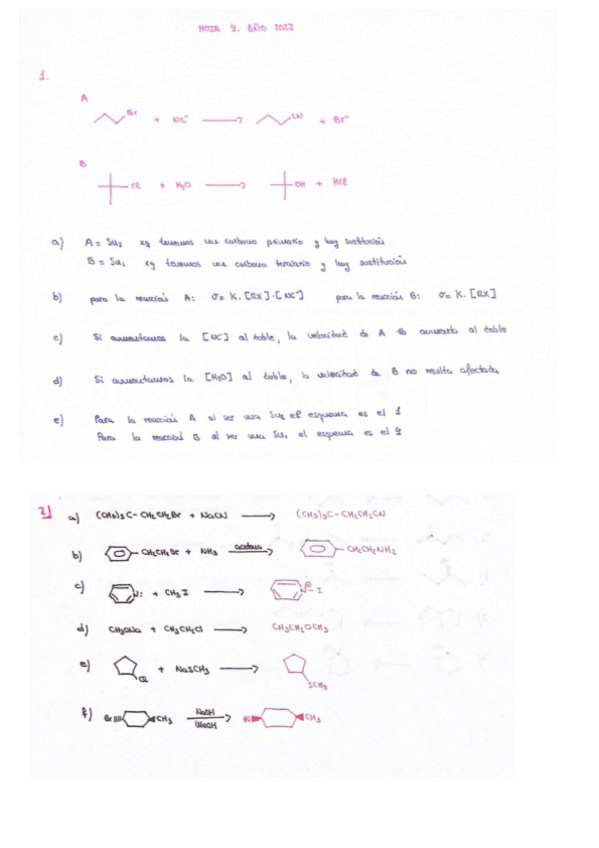 HOJA 4. AÑO 2022
1.
A
Br + NC⁻ → CN + Br⁻
B
Cl + H₂O → OH + HCl
a) A = SN₂ xq tenemos un carbono primario y hay sustitución
B = SN₁ xq tenemos un carbono terciario y hay sustitución
b) para la reacción A: σ = K. [RX]·[NC⁻] para la reacción B: σ = K. [RX]
c) Si aumentamos la [NC⁻] al doble, la velocidad de A aumenta al doble
d) Si aumentamos la [H₂O] al doble, la velocidad de B no resulta afectada
e) Para la reacción A al ser una SN₂ el esquema es el 1
Para la reacción B al ser una SN₁ el esquema es el 4
2) a) (CH₃)₃C-CH₂CH₂Br + NaCN → (CH₃)₃C-CH₂CH₂CN
b) -CH₂CH₂Br + NH₃ → -CH₂CH₂NH₂
c) N: + CH₃I → N-I
d) CH₃ONa + CH₃CH₂Cl → CH₃CH₂OCH₃
e) Cl + NaSCH₃ → SCH₃
f) Br CH₃ NaOH → CH₃